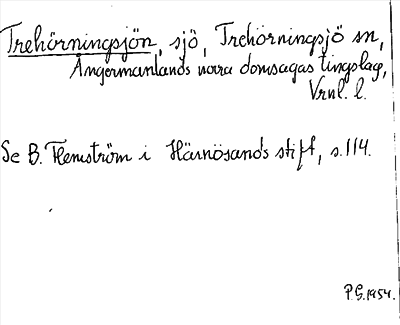 Trehörningsjön, sjö, Trehörningsjö sn,
Ångermanlands norra domsagas tingslag,
Vrnl. l.
Se B. Flemström i Härnösands stift, s. 114.
P.G. 1954.